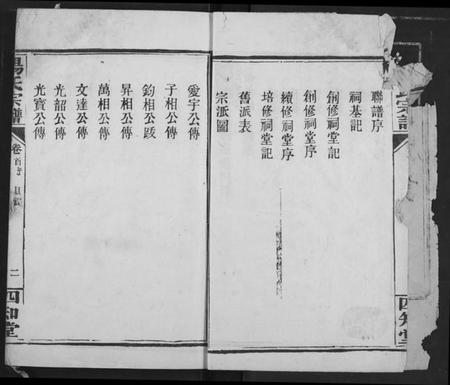 聯譜序
祠基記
創修祠堂記
創修祠堂序
續修祠堂序
培修祠堂記
舊派表
宗派圖
四知堂
愛宇公傳
子相公傳
鈞相公跋
昇相公傳
萬相公傳
文達公傳
光韶公傳
光寶公傳
楊氏宗譜
卷首
二
四知堂